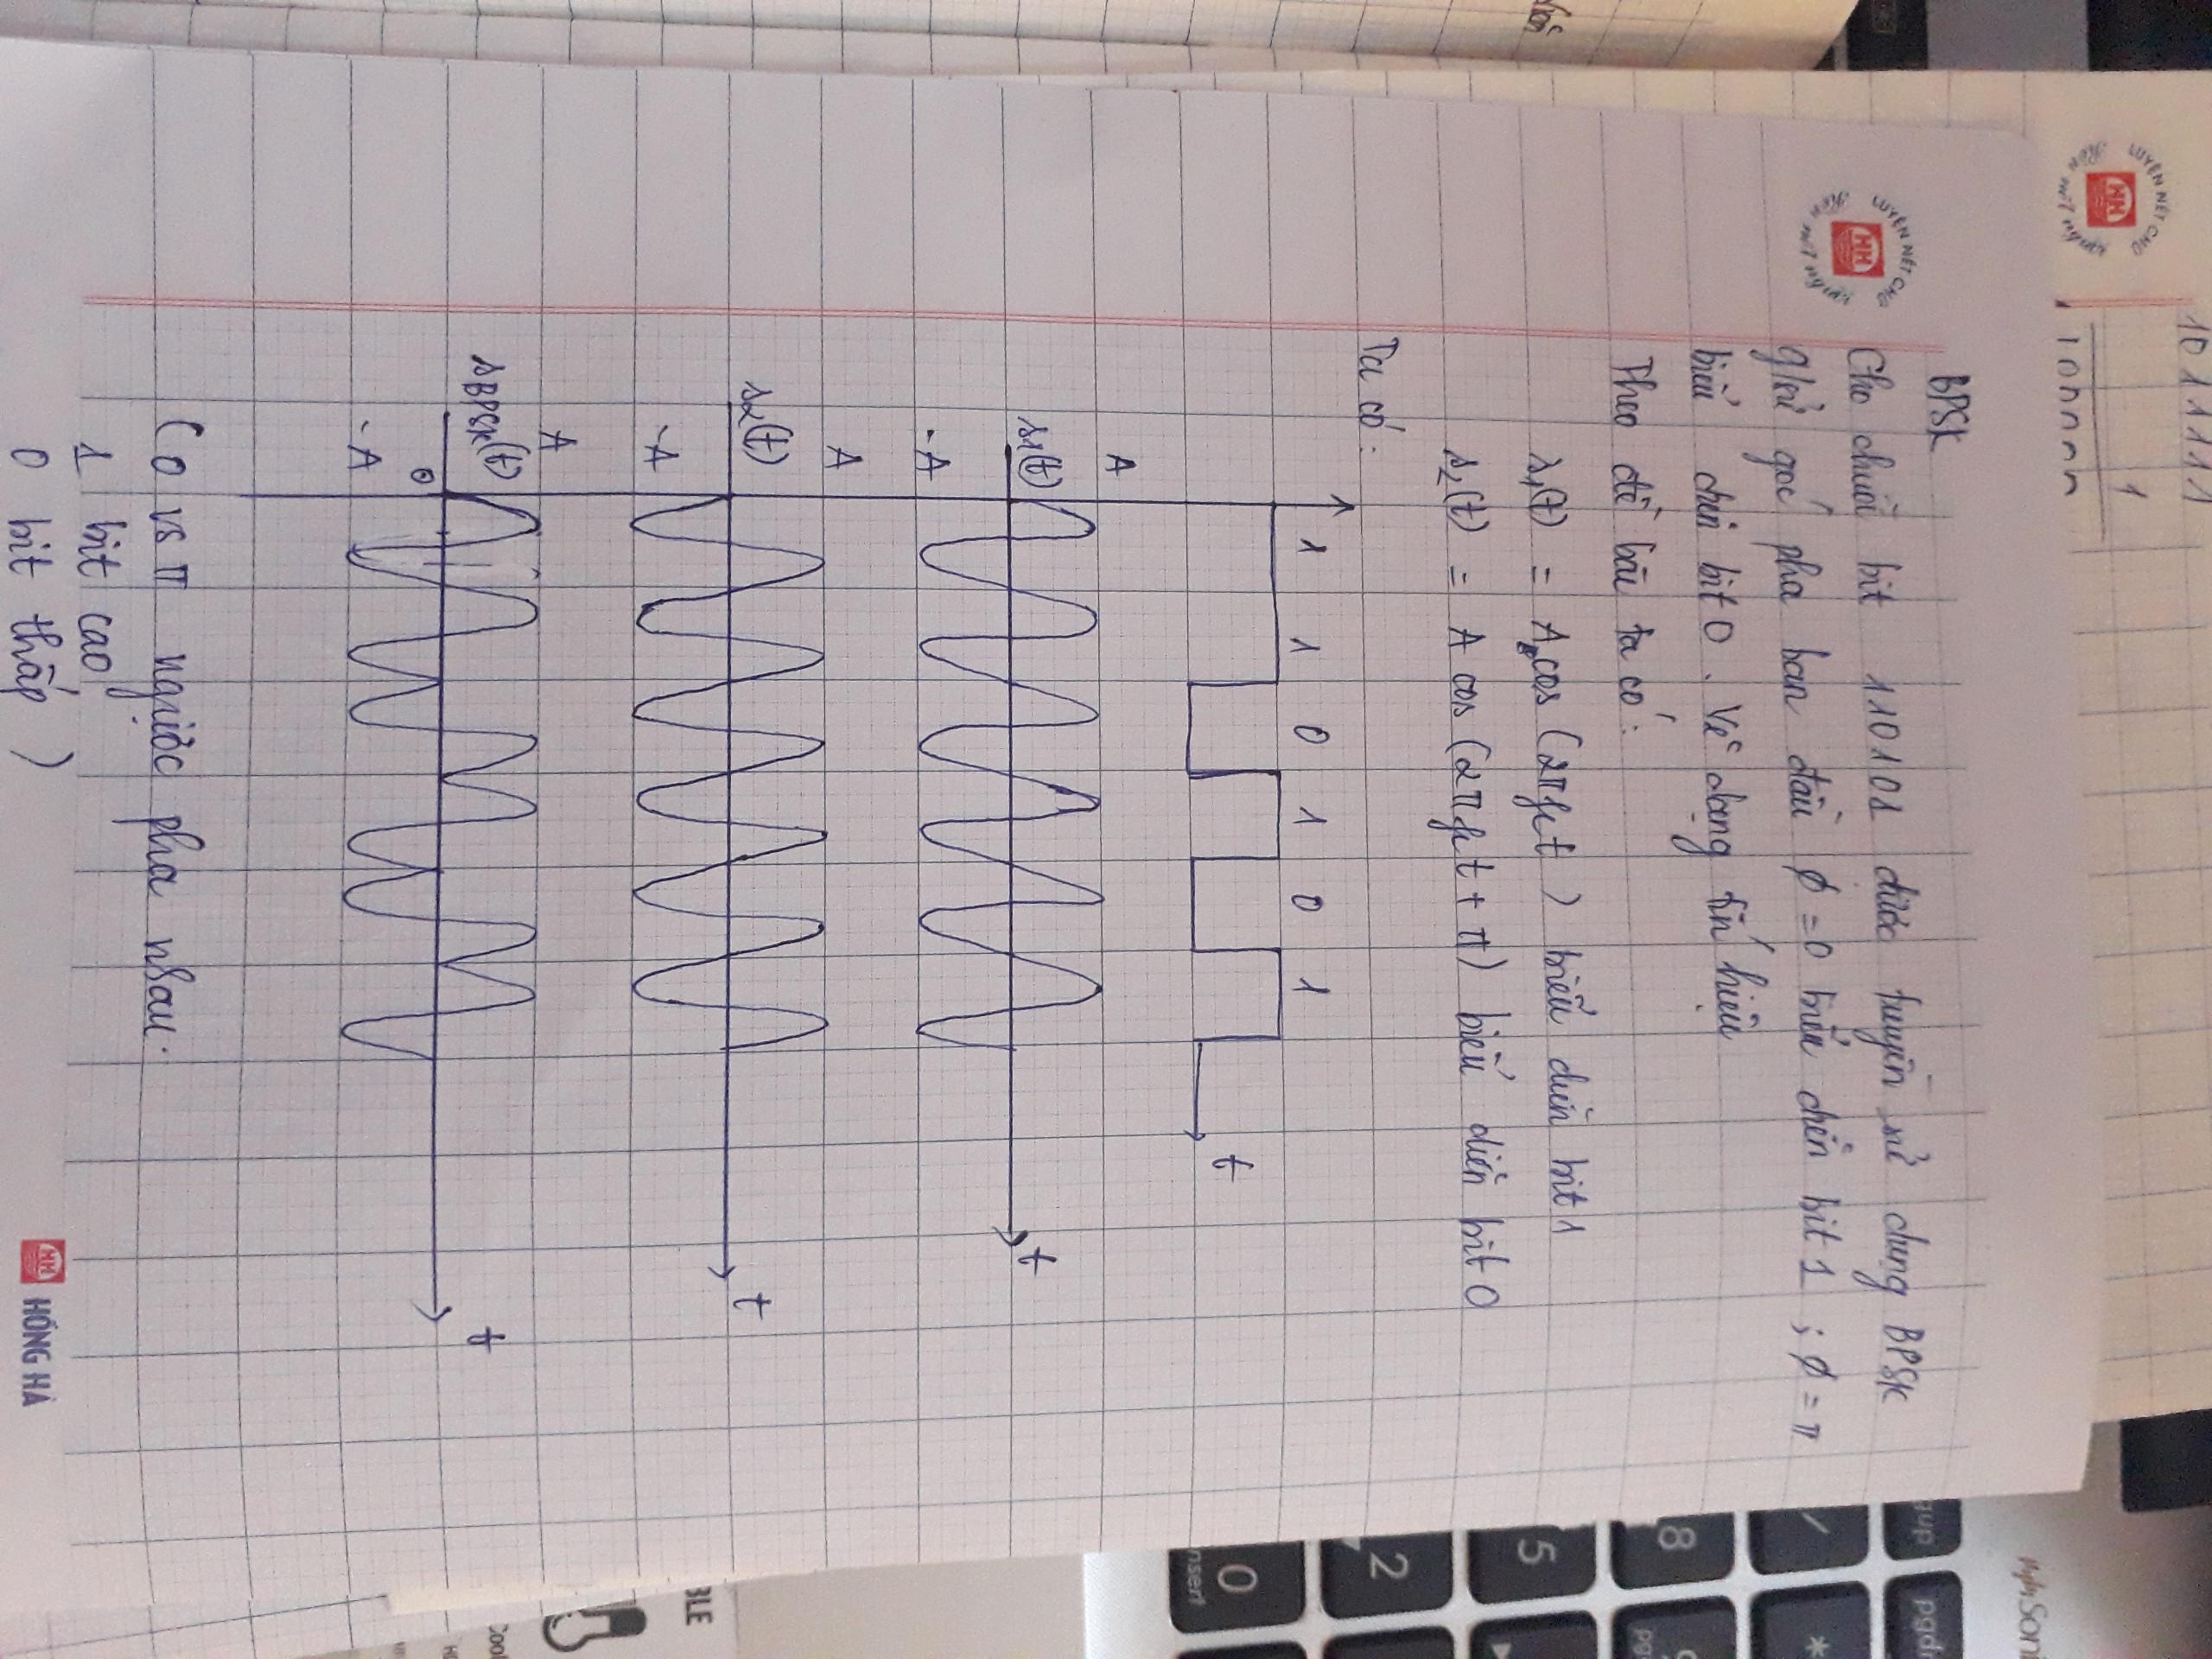 1011111
1
100000
LUYỆN NÉT CHỮ
HH
Rèn nết người
BPSK
Cho chuỗi bit 110101 được truyền sử dụng BPSK
g/sử góc pha ban đầu φ = 0 biểu diễn bit 1 ; φ = π
biểu diễn bit 0. Vẽ dạng tín hiệu
Theo đề bài ta có:
s₁(t) = A cos (2πfct) biểu diễn bit 1
s₂(t) = A cos (2πfct + π) biểu diễn bit 0
Ta có:
1 1 0 1 0 1
t
A
s1(t) t
-A
A
s2(t) t
-A
A
sBPSK(t) t
0
-A
(0 vs π ngược pha nhau.
1 bit cao,
0 bit thấp)
HH HỒNG HÀ
LUYỆN NÉT CHỮ
HH
Rèn nết người
Soni
gup
pgdn
/
*
8
9
5
2
0
insert
BLE
Cool